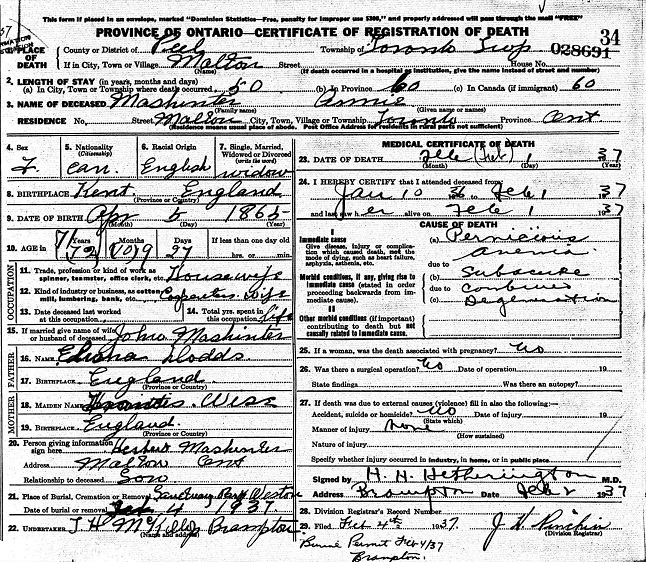 This form if placed in an envelope, marked "Dominion Statistics—Free, penalty for improper use $300," and properly addressed will pass through the mail "FREE"
PROVINCE OF ONTARIO—CERTIFICATE OF REGISTRATION OF DEATH
34
028691
PLACE OF DEATH
County or District of Peel Township of Toronto Twp
If in City, Town or Village Malton Street House No.
(Name) (If death occurred in a hospital or institution, give the name instead of street and number)
2. LENGTH OF STAY (in years, months and days)
(a) In City, Town or Township where death occurred 50 (b) In Province 60 (c) In Canada (if immigrant) 60
3. NAME OF DECEASED Mashinter Annie
(Family name) (Given name or names)
RESIDENCE No. Street Malton City, Town, Village or Township Toronto Province Ont
(Residence means usual place of abode. Post Office Address for residents in rural parts not sufficient)
4. Sex 5. Nationality (Citizenship) 6. Racial Origin 7. Single, Married, Widowed or Divorced (write the word)
F. Can. English widow
8. BIRTHPLACE Kent England
(Province or Country)
9. DATE OF BIRTH Apr 5 1865
(Month) (Day) (Year)
10. AGE in Years Months Days If less than one day old
71 9 27 hrs. or min.
OCCUPATION
11. Trade, profession or kind of work as spinner, teamster, office clerk, etc. Housewife
12. Kind of industry or business, as cotton mill, lumbering, bank, etc. Carpenters Wife
13. Date deceased last worked at this occupation 14. Total yrs. spent in this occupation Life
15. If married give name of wife or husband of deceased John Mashinter
FATHER
16. NAME Dodds
17. BIRTHPLACE England
(Province or Country)
MOTHER
18. MAIDEN NAME
19. BIRTHPLACE England.
(Province or Country)
20. Person giving information sign here Herbert Mashinter
Address Malton Ont
Relationship to deceased Son
21. Place of Burial, Cremation or Removal Sanctuary Park Weston
Date of burial or removal Feb 4 1937
22. UNDERTAKER J H McKillop Brampton
(Name and address)
MEDICAL CERTIFICATE OF DEATH
23. DATE OF DEATH Feb (Feb) 1 1937
(Month) (Day) (Year)
24. I HEREBY CERTIFY that I attended deceased from:
Jan 10 36 to Feb 1 1937
and last saw her alive on Feb 1 1937
CAUSE OF DEATH
I
Immediate cause
Give disease, injury or complication which caused death, not the mode of dying, such as heart failure, asphyxia, asthenia, etc.
(a) Pernicious
due to
Morbid conditions, if any, giving rise to immediate cause (stated in order proceeding backwards from immediate cause).
(b) Subacute
due to Combined
(c) Degeneration
II
Other morbid conditions (if important) contributing to death but not causally related to immediate cause.
25. If a woman, was the death associated with pregnancy? No
26. Was there a surgical operation? No Date of operation 19
State findings Was there an autopsy?
27. If death was due to external causes (violence) fill in also the following:—
Accident, suicide or homicide? No Date of injury 19
(State which)
Manner of injury none
(How sustained)
Nature of injury
Specify whether injury occurred in industry, in home, or in public place
Signed by H. H. Hetherington M.D.
Address Brampton Date Feb 2 1937
28. Division Registrar's Record Number
29. Filed Feb 4th 1937.
(Division Registrar)
Burial Permit Feb 4/37
Brampton.